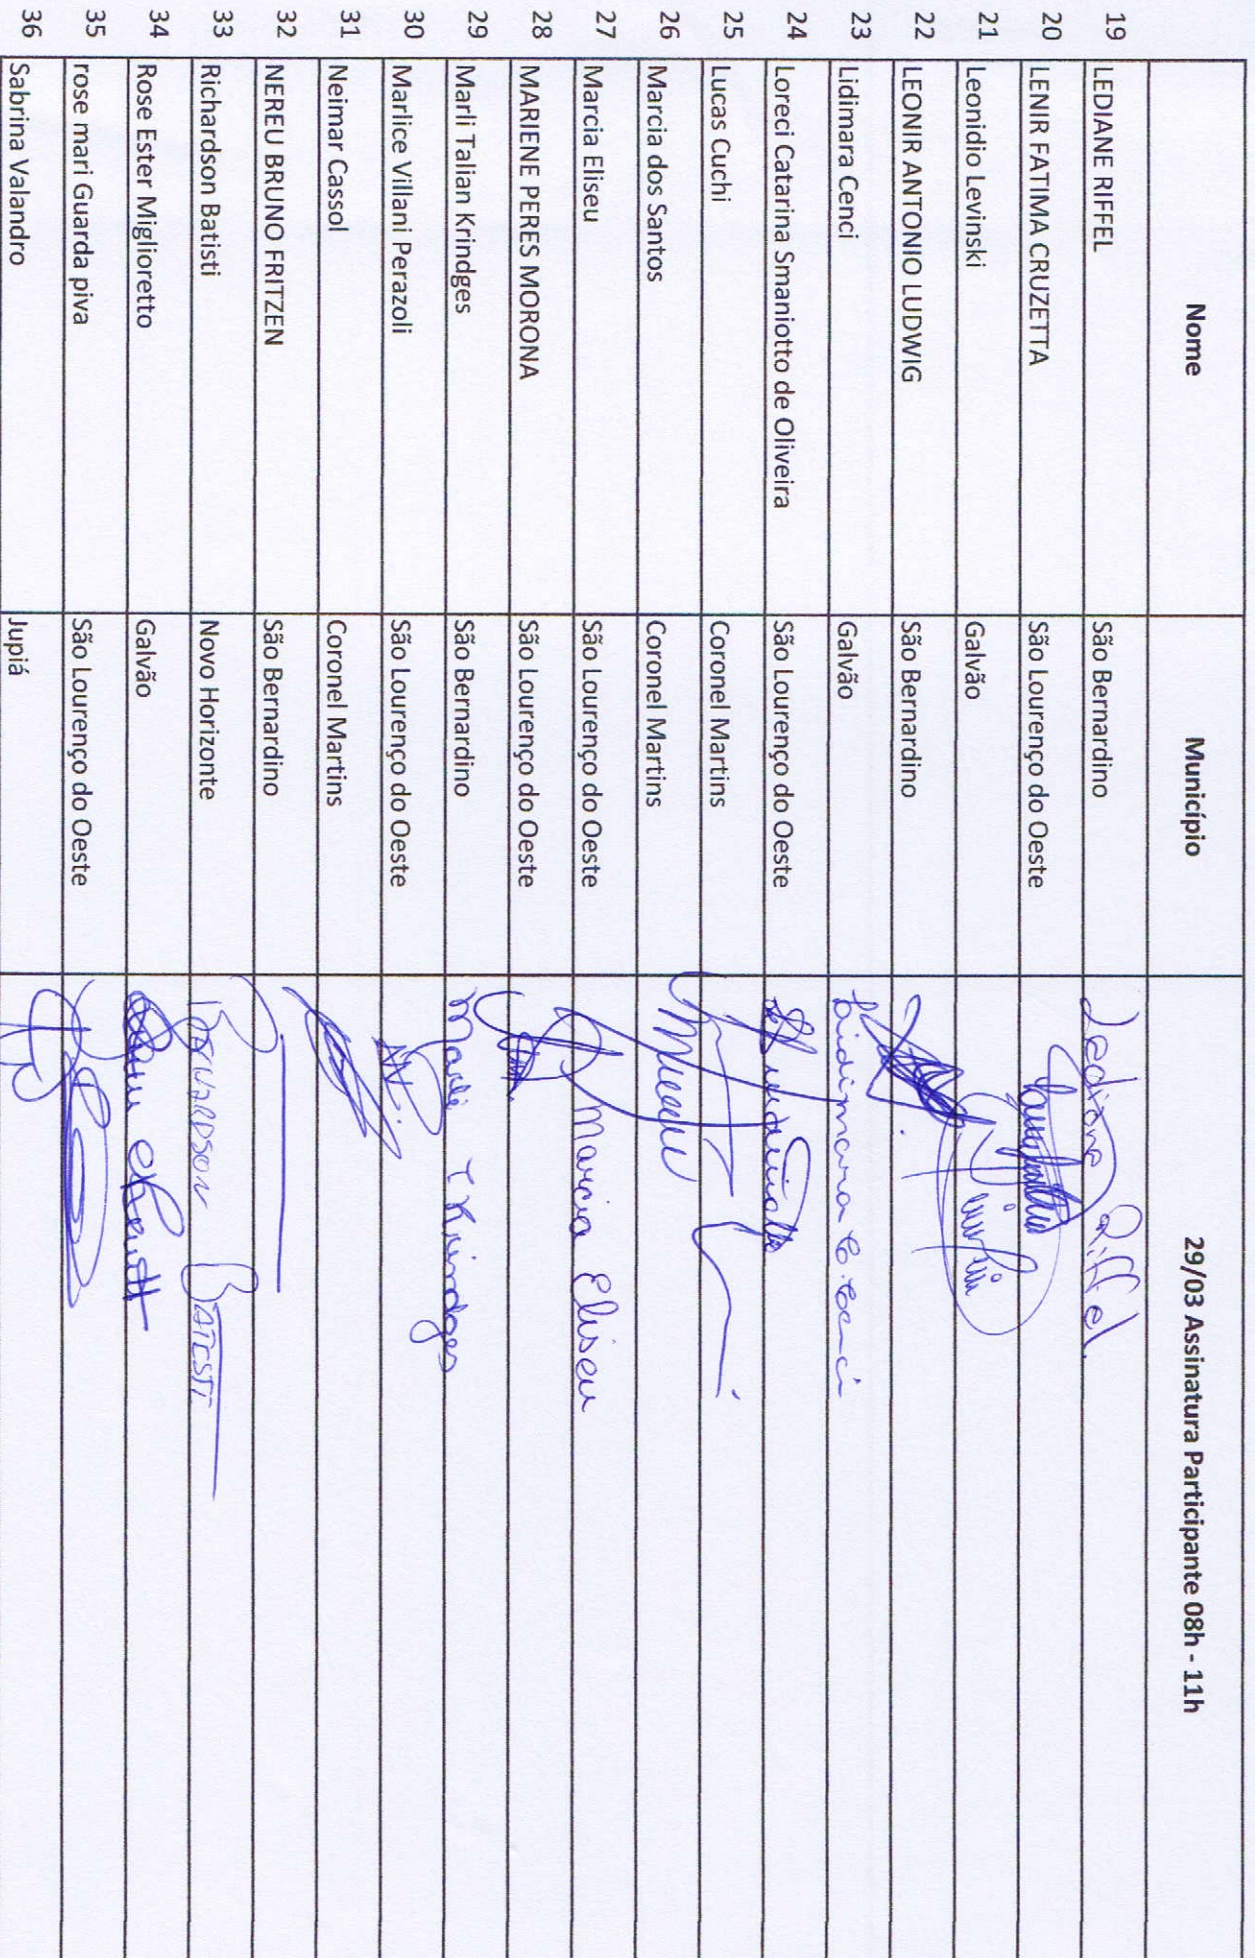 Nome Município 29/03 Assinatura Participante 08h - 11h
19 LEDIANE RIFFEL São Bernardino Lediane Riffel.
20 LENIR FATIMA CRUZETTA São Lourenço do Oeste
21 Leonidio Levinski Galvão
22 LEONIR ANTONIO LUDWIG São Bernardino
23 Lidimara Cenci Galvão Lidimara C. Cenci
24 Loreci Catarina Smaniotto de Oliveira São Lourenço do Oeste
25 Lucas Cuchi Coronel Martins
26 Marcia dos Santos Coronel Martins
27 Marcia Eliseu São Lourenço do Oeste Marcia Eliseu
28 MARIENE PERES MORONA São Lourenço do Oeste
29 Marli Talian Krindges São Bernardino Marli T Krindges
30 Marlice Villani Perazoli São Lourenço do Oeste
31 Neimar Cassol Coronel Martins
32 NEREU BRUNO FRITZEN São Bernardino
33 Richardson Batisti Novo Horizonte RICHARDSON BATISTI
34 Rose Ester Miglioretto Galvão
35 rose mari Guarda piva São Lourenço do Oeste
36 Sabrina Valandro Jupiá